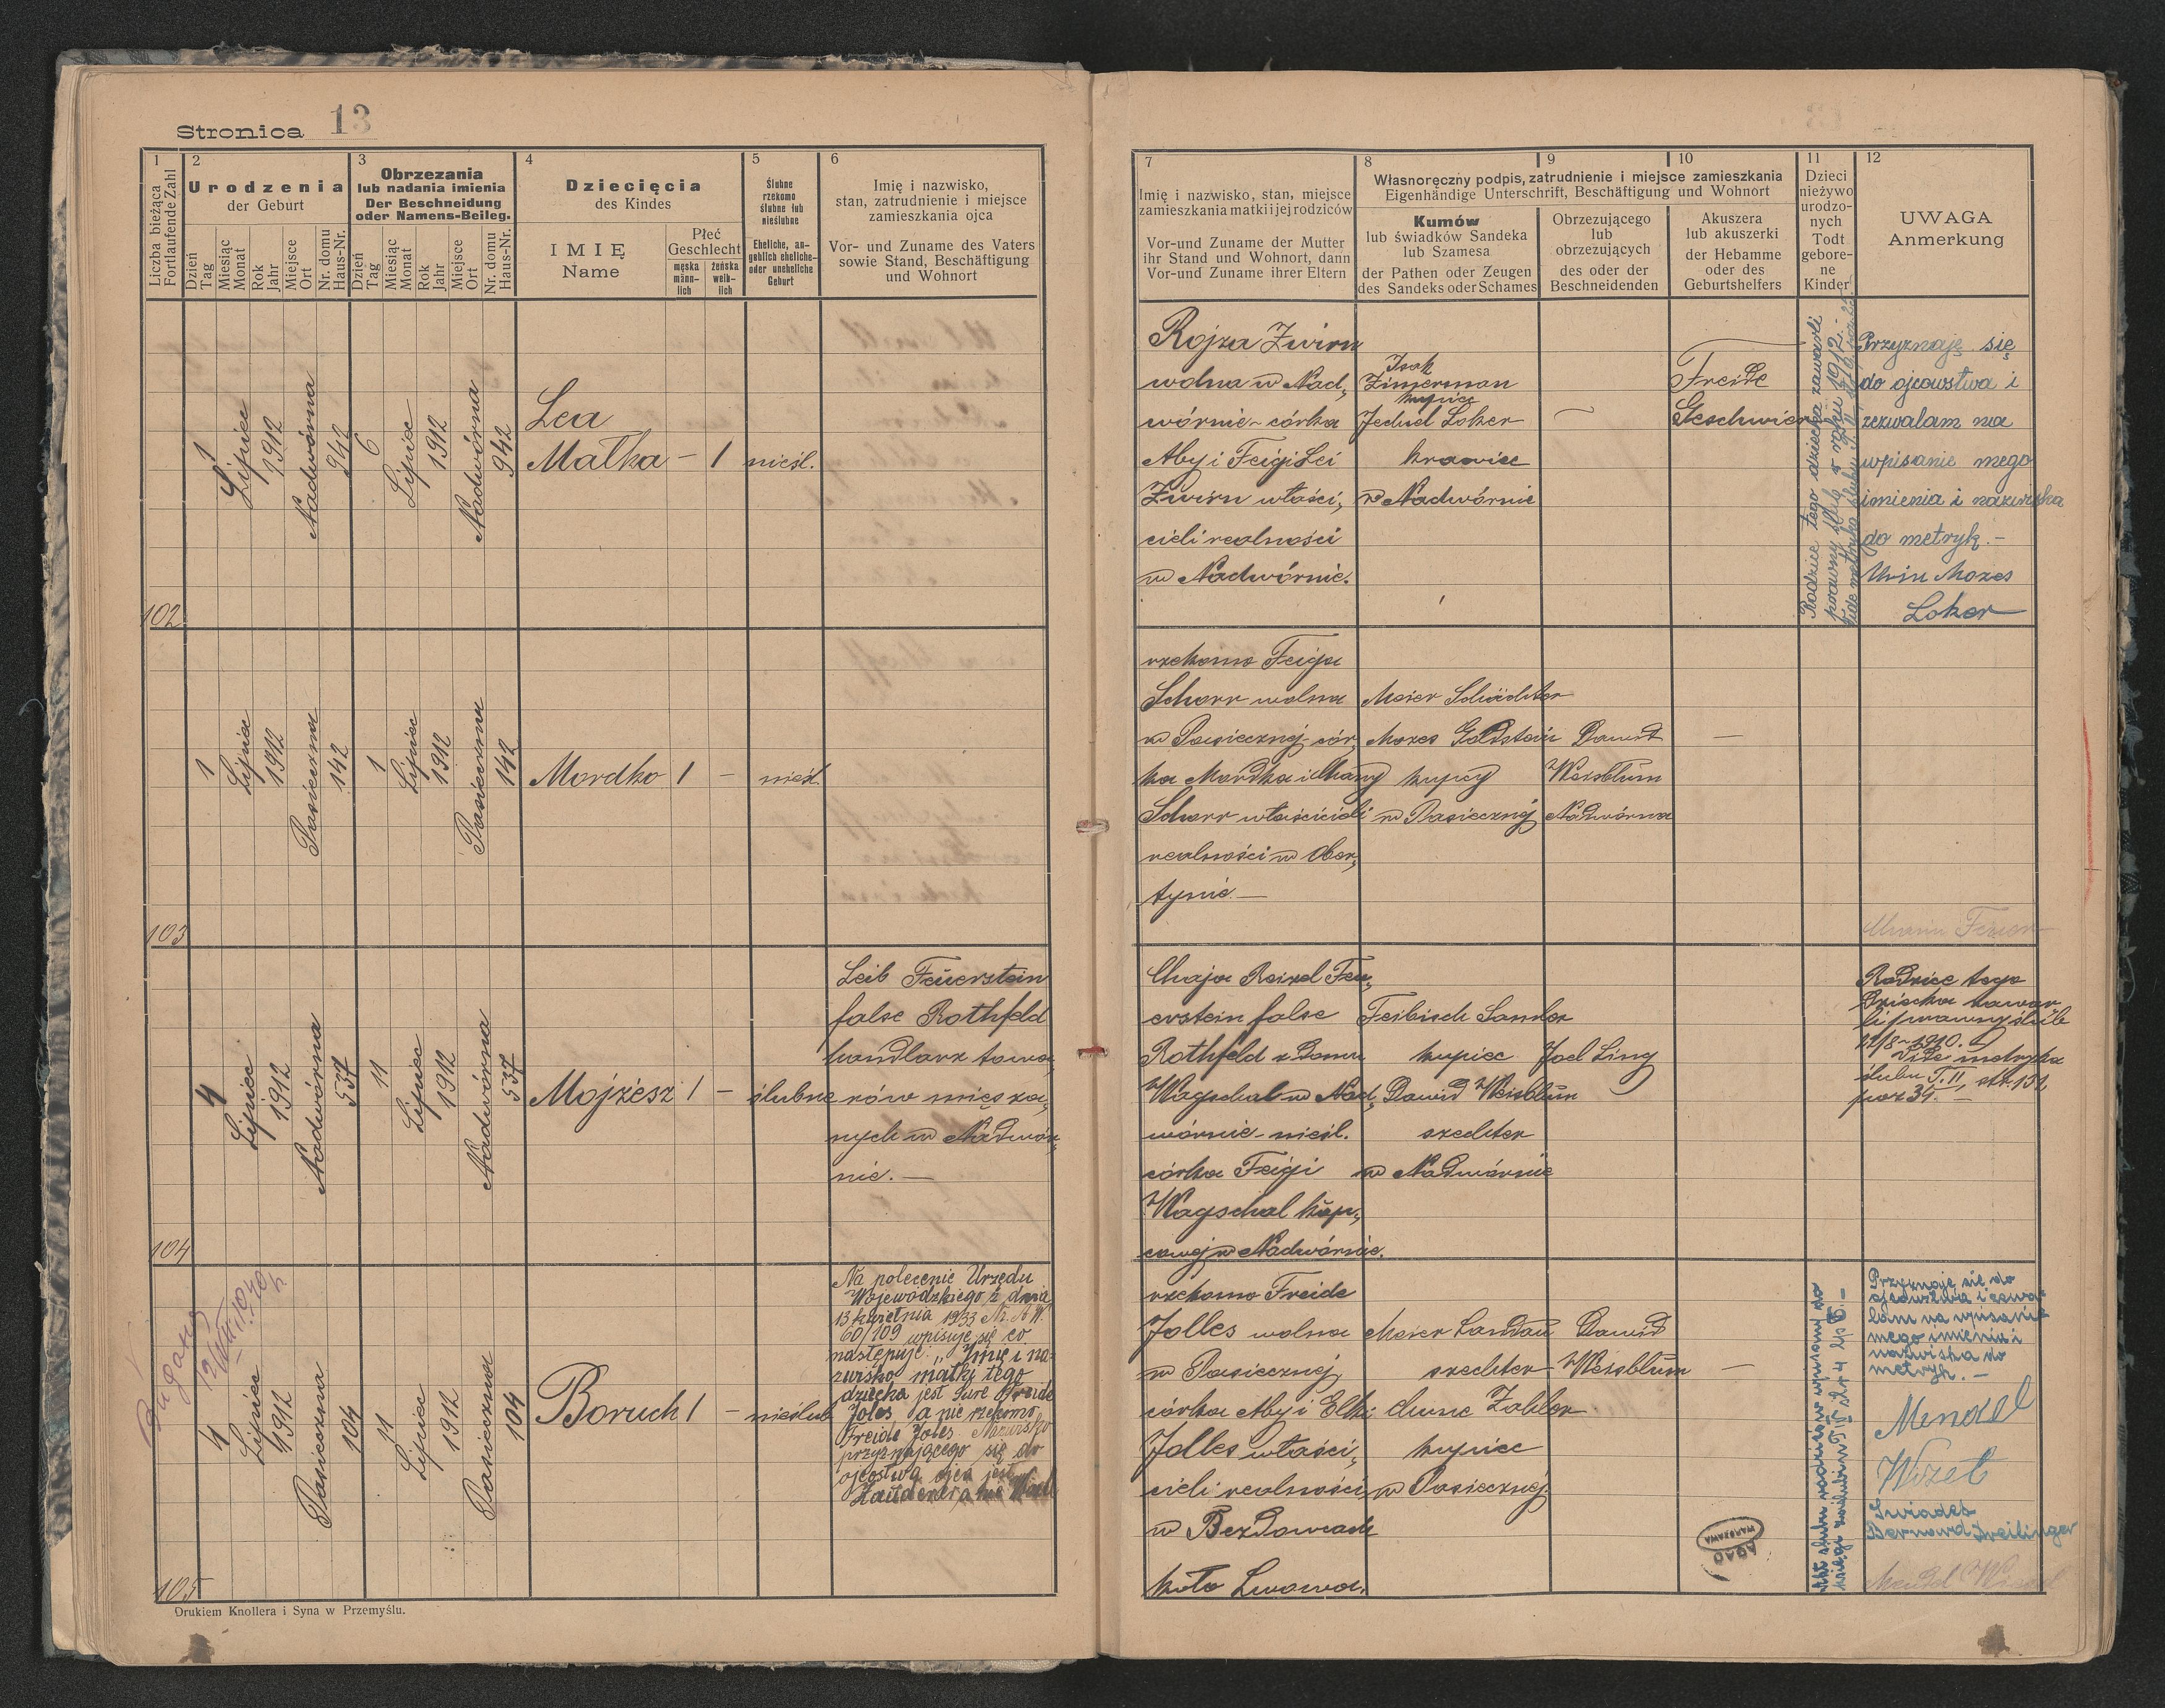 Stronica 13
1
Liczba bieżąca
Fortlaufende Zahl
2
Urodzenia
der Geburt
Dzień
Tag
Miesiąc
Monat
Rok
Jahr
Miejsce
Ort
Nr. domu
Haus-Nr.
3
Obrzezania
lub nadania imienia
Der Beschneidung
oder Namens-Beileg.
Dzień
Tag
Miesiąc
Monat
Rok
Jahr
Miejsce
Ort
Nr. domu
Haus-Nr.
4
Dziecięcia
des Kindes
IMIĘ
Name
Płeć
Geschlecht
męska
männ-
lich
żeńska
weib-
lich
5
Ślubne
rzekomo
ślubne lub
nieślubne
Eheliche, an-
geblich eheliche-
oder uneheliche
Geburt
6
Imię i nazwisko,
stan, zatrudnienie i miejsce
zamieszkania ojca
Vor- und Zuname des Vaters
sowie Stand, Beschäftigung
und Wohnort
7
Imię i nazwisko, stan, miejsce
zamieszkania matki i jej rodziców
Vor-und Zuname der Mutter
ihr Stand und Wohnort, dann
Vor-und Zuname ihrer Eltern
8
9
10
Własnoręczny podpis, zatrudnienie i miejsce zamieszkania
Eigenhändige Unterschrift, Beschäftigung und Wohnort
Kumów
lub świadków Sandeka
lub Szamesa
der Pathen oder Zeugen
des Sandeks oder Schames
Obrzezującego
lub
obrzezujących
des oder der
Beschneidenden
Akuszera
lub akuszerki
der Hebamme
oder des
Geburtshelfers
11
Dzieci
nieżywo
urodzo-
nych
Todt
gebore-
ne
Kinder
12
UWAGA
Anmerkung
102
1
Lipiec
1912
Nadwórna
942
6
Lipiec
1912
Nadwórna
942
Lea
Malka - 1
nieśl.
Rojza Zwirn
wolna w Nad„
wórnie - córka
Aby i Feigi Lei
Zwirn właści„
cieli realności
w Nadwórnie.
Isak
Zimerman
kupiec
Jechiel Loker
krawiec
w Nadwórnie
Freide
Geschwier
Rodzice tego dziecka zawarli
prawny ślub w roku 1912.-
Przyznaję się
do ojcowstwa i
zezwalam na
wpisanie mego
imienia i nazwiska
do metryk.-
Mozes
Loker
103
1
Lipiec
1912
Pasieczna
142
1
Lipiec
1912
Pasieczna
142
Mordko 1 -
nieśl.
rzekomo Feiga
Schorr wolna
w Pasiecznej cór„
ka Mordka i Chany
Schorr właścicieli
realności w Ober„
tynie.-
Meier Schächter
Mozes Goldstein
kupcy
w Pasiecznej
Dawid
Weisblum
Nadwórna
-
104
4
Lipiec
1912
Nadwórna
537
11
Lipiec
1912
Nadwórna
537
Mojżesz 1 -
ślubne
Leib Feuerstein
false Rothfeld
handlarz towa„
rów miesza„
nych w Nadwór„
nie.-
Chaja Reizel Feu„
erstein false
Rothfeld z domu
Wagschal w Nad„
wórnie - nieśl.
córka Feigi
Wagschal kup„
cowej w Nadwórnie.
Feibisch Sandor
kupiec
Dawid Weisblum
szechter
w Nadwórnie
Joel Ling
Rodzice tego
dziecka zawar
li prawny ślub
11/8 - 1910.
Vide metryka
ślubu T. II, str. 131,
poz 34.
105
4
Lipiec
1912
Pasieczna
104
11
Lipiec
1912
Pasieczna
104
Boruch 1 -
nieślub
Na polecenie Urzędu
Wojewódzkiego z dnia
13 kwietnia 1933 Nr. A.W.
60/109 wpisuje się co
następuje: „Imię i na-
zwisko matki tego
dziecka jest Sure Freide
Joles a nie rzekomo
Freide Joles. Nazwisko
przyznającego się do
ojcostwa ojca jest
rzekomo Freide
Jolles wolna
w Pasiecznej
córka Aby i Elki
Jolles właści„
cieli realności
w
koło Lwowa.
Meier Landau
szechter
Zahler
kupiec
w Pasiecznej
Dawid
Weisblum
-
Przyznaję się do
ojcowstwa i zezwa-
lam na wpisanie
mego imienia i
nazwiska do
metryk.-
Mendel
Wizel
Świadek
Bernard
AGAD
WARSZAWA
Drukiem Knollera i Syna w Przemyślu.